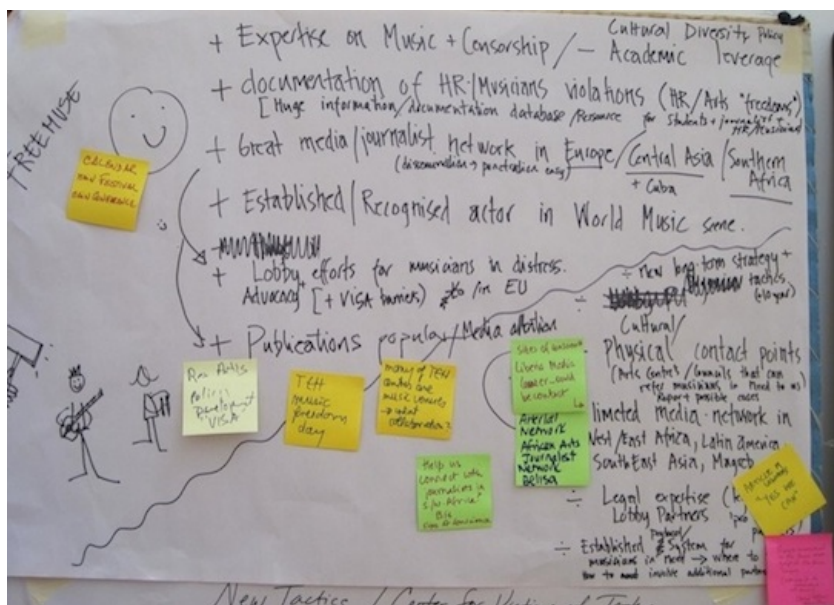 FREEMUSE
+ Expertise on Music + Censorship / – Cultural Diversity Policy
Academic leverage
+ documentation of HR/Musicians violations (HR/Arts "freedoms")
[Huge information/documentation database / Resource for students + journalists +
HR/Musicians]
+ Great media/journalist network in Europe/Central Asia/Southern
Africa
(dissemination → penetration easy)
+ Cuba
+ Established/Recognised actor in World Music scene.
+ Lobby efforts for musicians in distress.
Advocacy [+ VISA barriers) to/in EU
+ Publications popular/Media attention
÷ new long-term strategy +
tactics
÷ Cultural/
Physical contact points
(Arts Centres/Councils that can
refer musicians in need to us)
Report possible cases
limited media network in
West/East Africa, Latin America
South East Asia, Magreb
÷ Legal expertise
Lobby Partners
÷ Established System for
musicians in need → where to
how to involve additional
CALENDAR
FESTIVAL
CONFERENCE
Arts
Policies
Development
"VISA"
TEH
music
freedom
day
many of TEH
centres are
music venues
→ what
collaboration?
Sites of conscience
Liberia Media
center could
be contact
Arterial
Network
African Arts
Journalist
Network
Belisa
Help us
connect with
journalists in
Africa?
"YES WE
CAN"
New Tactics / Center for Victims of Torture